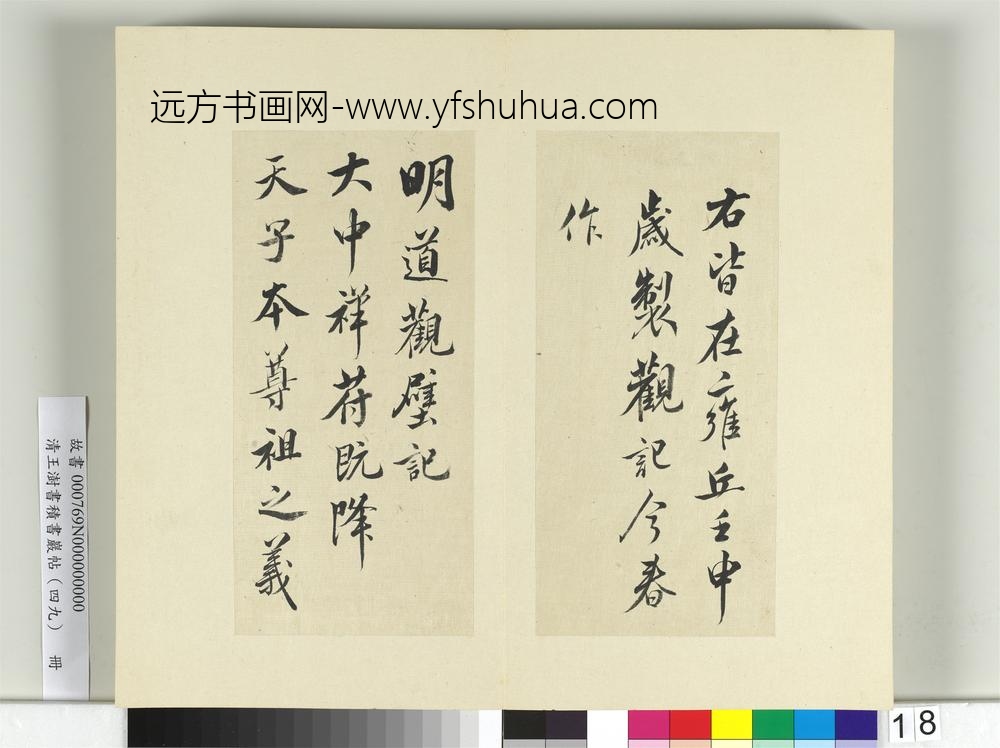 远方书画网-www.yfshuhua.com
右皆在雍丘壬申
歲製觀記今春
作
明道觀壁記
大中祥符既降
天子本尊祖之義
故書 000769N000000000
清王澍書積書巖帖(四九) 冊
18